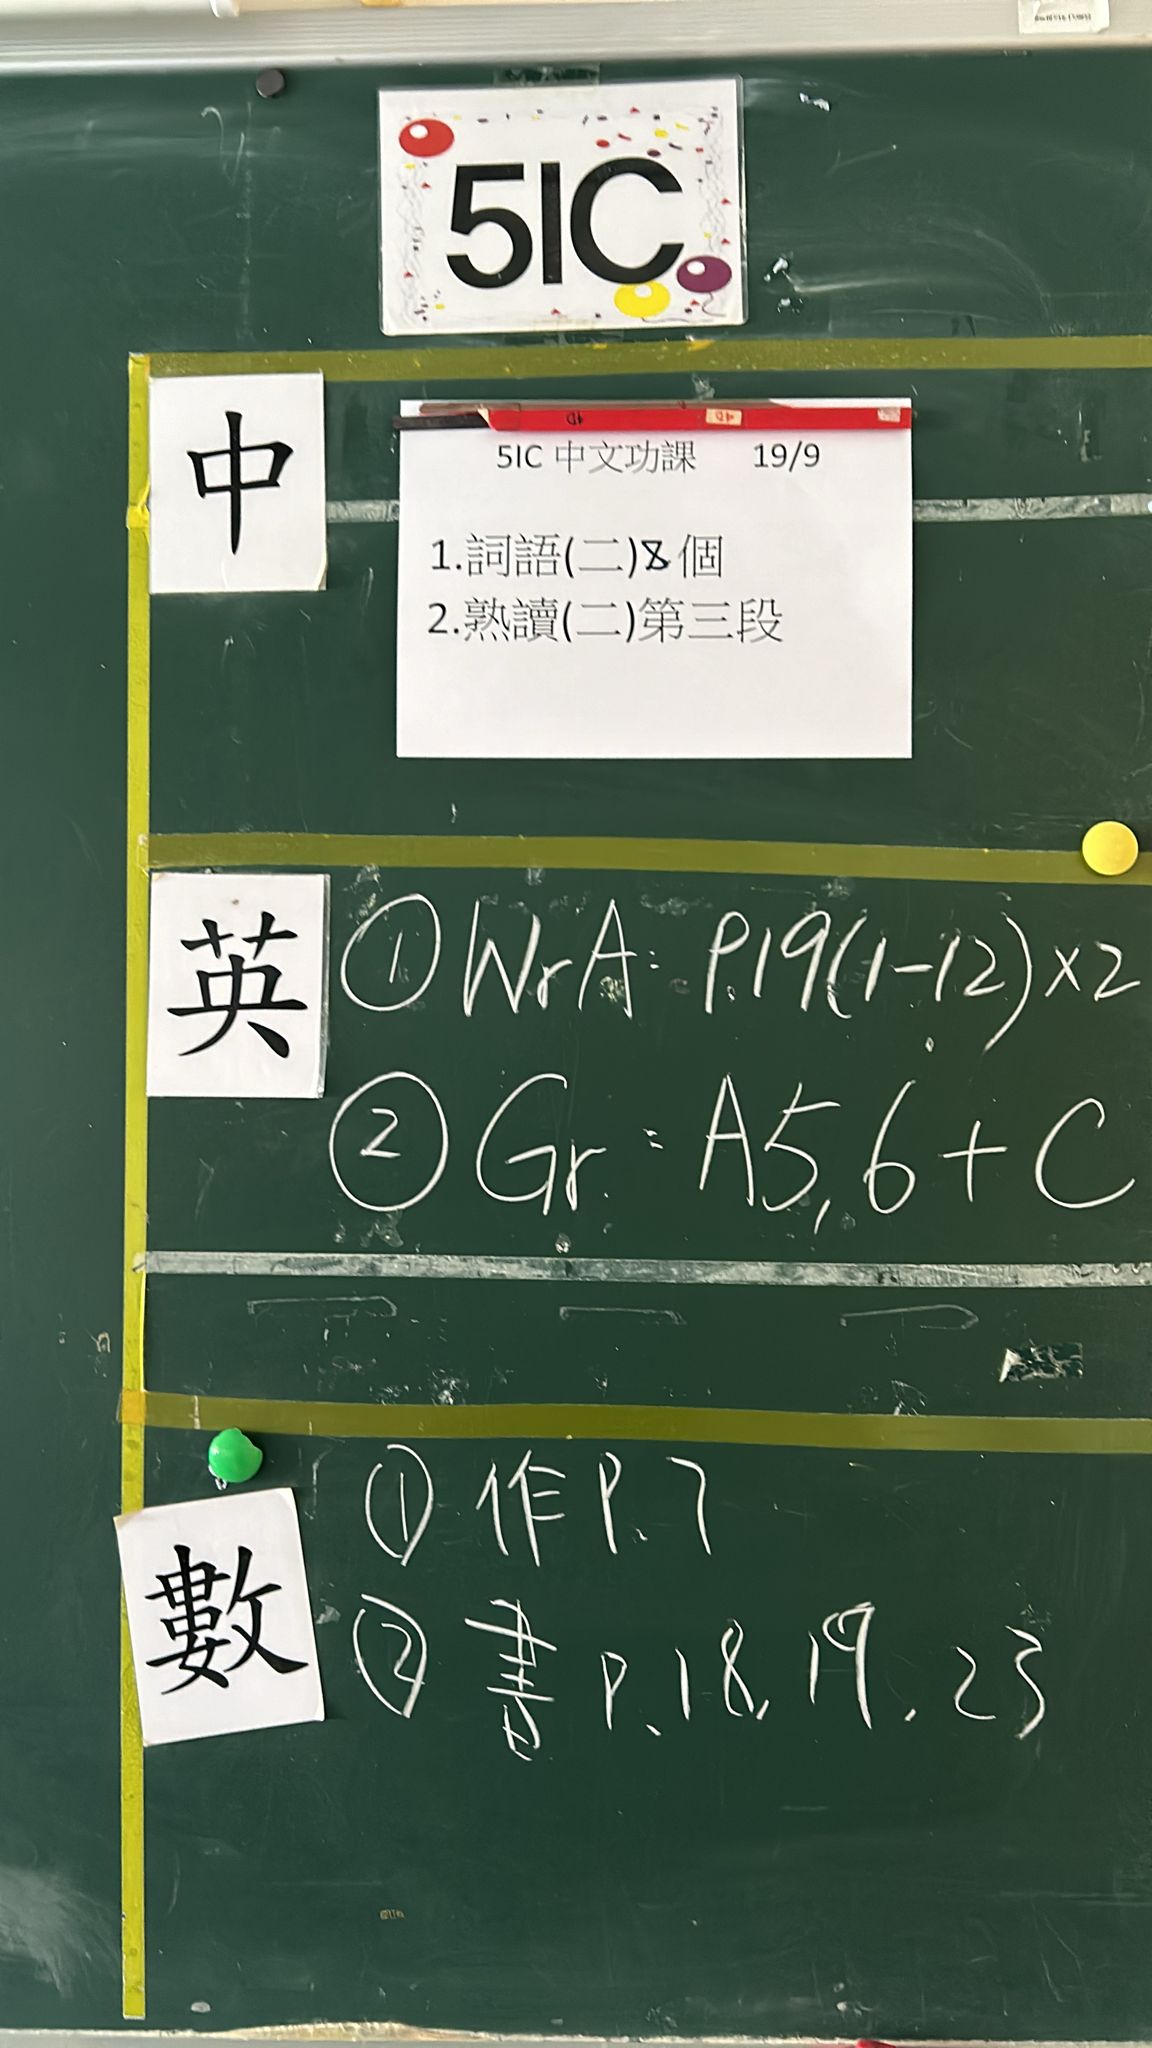 5IC
中
5IC 中文功課 19/9
1.詞語(二)8個
2.熟讀(二)第三段
英
① WrA: P.19(1-12)×2
② Gr: A5,6+C
數
① 作P.7
② 書P.18,19,23